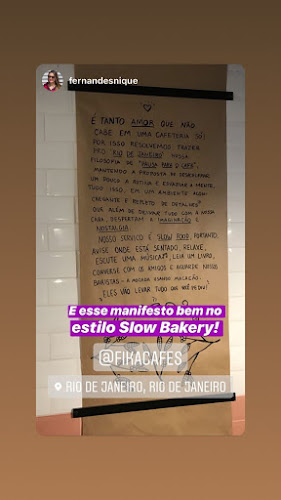 fernandesnique
É TANTO AMOR QUE NÃO
CABE EM UMA CAFETERIA SÓ!
POR ISSO RESOLVEMOS TRAZER
PRO "RIO DE JANEIRO" NOSSA
FILOSOFIA DE "PAUSA PARA O CAFÉ",
MANTENDO A PROPOSTA DE DESACELERAR
UM POUCO A ROTINA E ESVAZIAR A MENTE.
TUDO ISSO EM UM AMBIENTE ACON-
CHEGANTE E REPLETO DE DETALHES
QUE ALÉM DE DEIXAR TUDO COM A NOSSA
CARA DESPERTAM A IMAGINAÇÃO E
NOSTALGIA.
NOSSO SERVIÇO É SLOW FOOD, PORTANTO,
AVISE ONDE ESTÁ SENTADO, RELAXE,
ESCUTE UMA MÚSICA, LEIA UM LIVRO,
CONVERSE COM OS AMIGOS E AGUARDE NOSSOS
BARISTAS
ELES VÃO LEVAR TUDO QUE VOCÊ PEDIU!
E esse manifesto bem no
estilo Slow Bakery!
@FIKACAFES
RIO DE JANEIRO, RIO DE JANEIRO